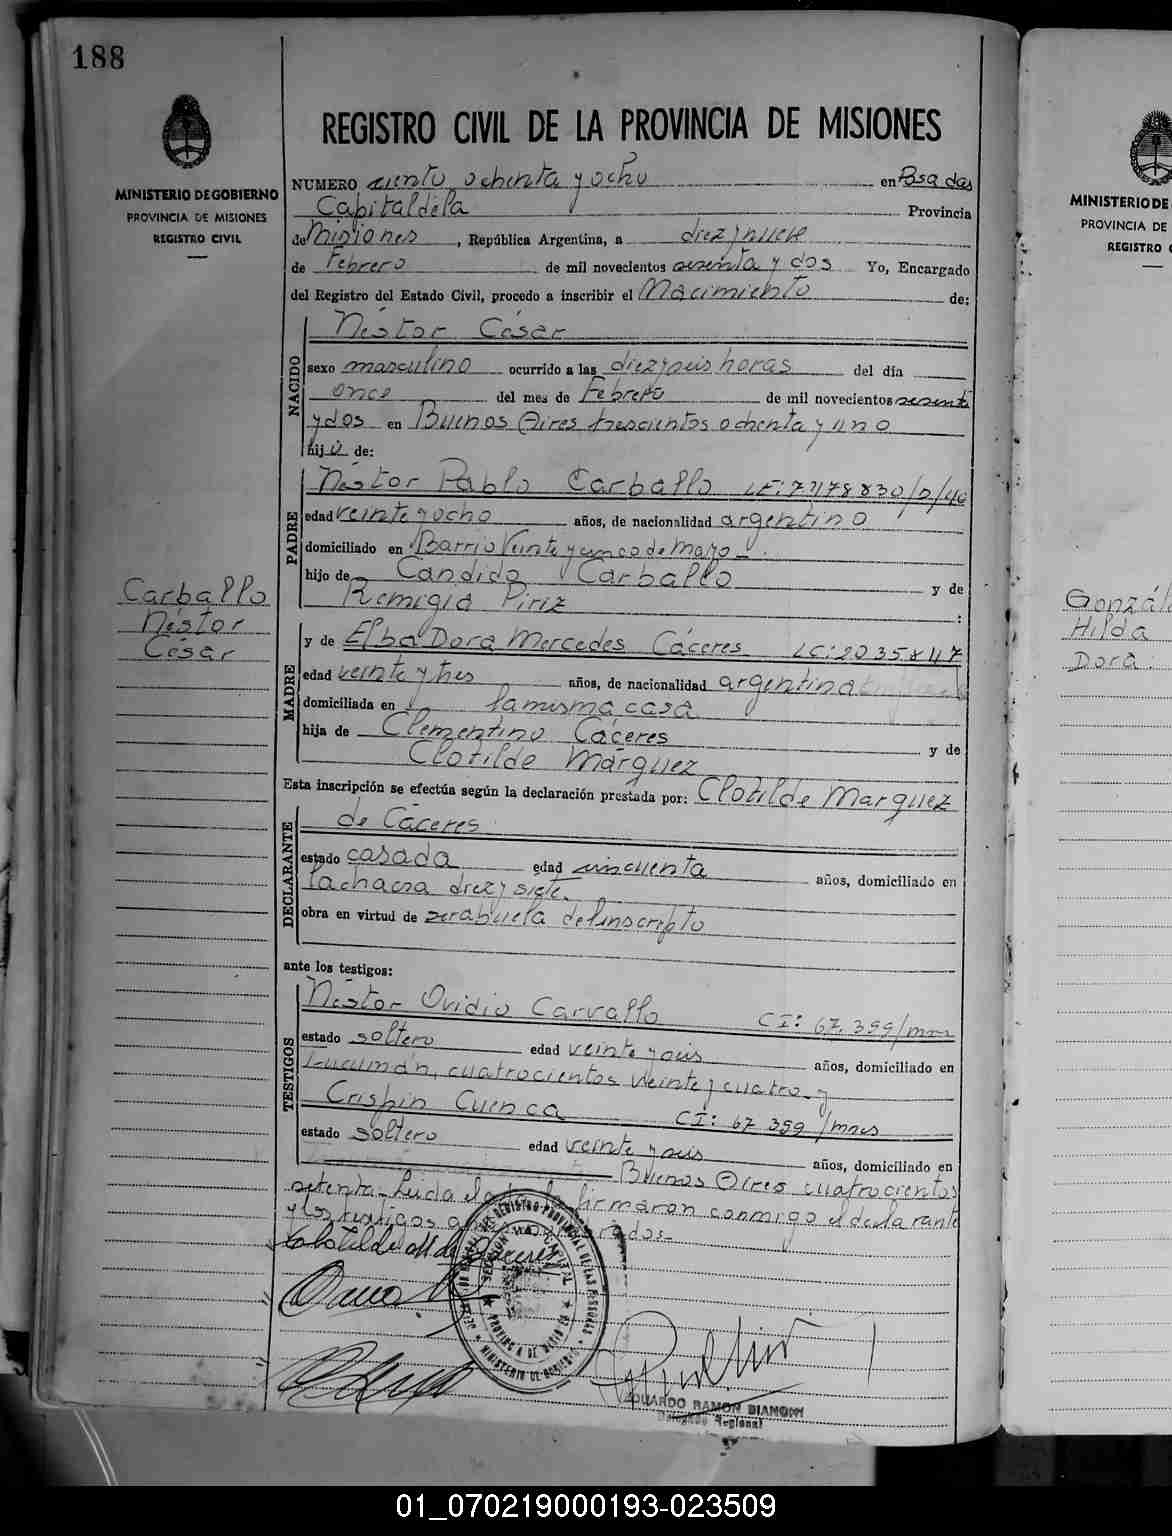 188
MINISTERIO DE GOBIERNO
PROVINCIA DE MISIONES
REGISTRO CIVIL
Carballo
Néstor
César
REGISTRO CIVIL DE LA PROVINCIA DE MISIONES
NUMERO ciento ochenta y ocho en Posadas
Capital de la Provincia
de Misiones, República Argentina, a diez y nueve
de Febrero de mil novecientos sesenta y dos Yo, Encargado
del Registro del Estado Civil, procedo a inscribir el Nacimiento de:
NACIDO
Néstor César
sexo masculino ocurrido a las diez y seis horas del día
once del mes de Febrero de mil novecientos sesenta
y dos en Buenos Aires trescientos ochenta y uno
hijo de:
PADRE
Néstor Pablo Carballo LE: 7.478.830/D/40
edad veinte y ocho años, de nacionalidad argentino
domiciliado en Barrio Veinte y cinco de Mayo
hijo de Candido Carballo y de
Remigia Piriz :
MADRE
y de Elba Dora Mercedes Cáceres LC: 2035847
edad veinte y tres años, de nacionalidad argentina
domiciliada en la misma casa
hija de Clementino Cáceres y de
Clotilde Márquez
Esta inscripción se efectúa según la declaración prestada por: Clotilde Marquez
DECLARANTE
de Cáceres
estado casada edad cincuenta años, domiciliado en
la chacra diez y siete.
obra en virtud de ser abuela del inscripto
ante los testigos:
TESTIGOS
Néstor Ovidio Carvallo CI: 67.399/mnes
estado soltero edad veinte y seis años, domiciliado en
Tucumán, cuatrocientos veinte y cuatro y
Crispin Cuenca CI: 67 399/mnes
estado soltero edad veinte y seis años, domiciliado en
Buenos Aires cuatrocientos
setenta. Leida el acta la firmaron conmigo el declarante
y los testigos
Clotilde M de Caceres
EDUARDO RAMON BIANCHI
Delegado Regional
MINISTERIO DE
PROVINCIA DE
REGISTRO C
Gonzál
Hilda
Dora
01_070219000193-023509